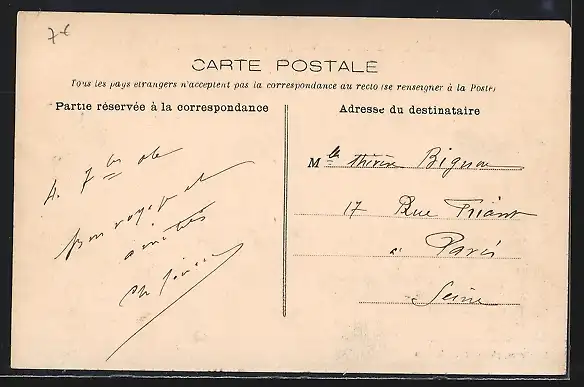 7€
CARTE POSTALE
Tous les pays etrangers n'acceptent pas la correspondance au recto (se renseigner à la Poste)
Partie réservée à la correspondance
Adresse du destinataire
4. 7bre
Bon voyage et
amitiés
Mlle Thérèse Bignon
17 Rue Friant
à Paris
Seine